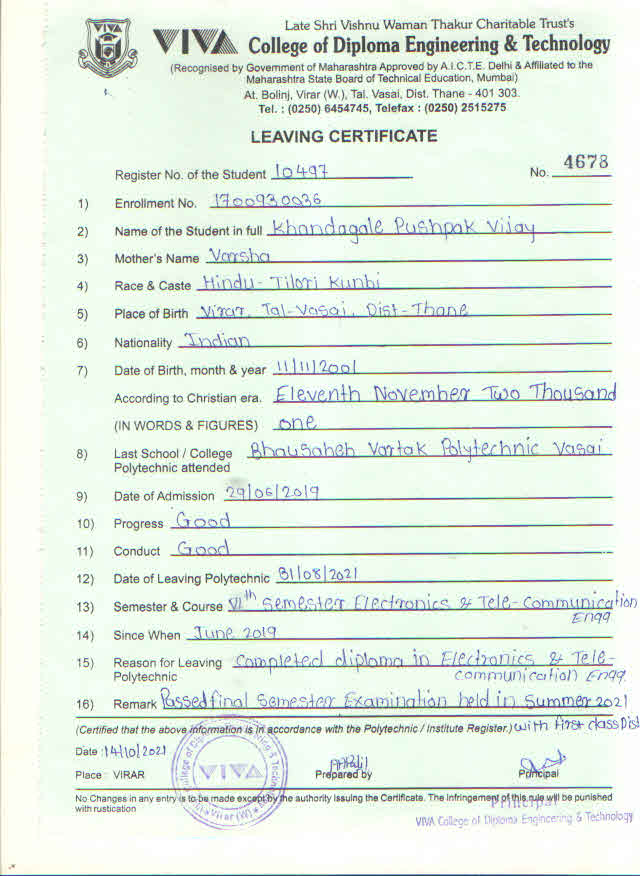 Late Shri Vishnu Waman Thakur Charitable Trust's
VIVA College of Diploma Engineering & Technology
(Recognised by Government of Maharashtra Approved by A.I.C.T.E. Delhi & Affiliated to the
Maharashtra State Board of Technical Education, Mumbai)
At. Bolinj, Virar (W.), Tal. Vasai, Dist. Thane - 401 303.
Tel. : (0250) 6454745, Telefax : (0250) 2515275
LEAVING CERTIFICATE
Register No. of the Student 10497 No. 4678
1) Enrollment No. 1700930036
2) Name of the Student in full Khandagale Pushpak Vijay
3) Mother's Name Varsha
4) Race & Caste Hindu - Tilori Kunbi
5) Place of Birth Virar, Tal-Vasai, Dist-Thane
6) Nationality Indian
7) Date of Birth, month & year 11/11/2001
According to Christian era. Eleventh November Two Thousand
(IN WORDS & FIGURES) one
8) Last School / College Bhausaheb Vartak Polytechnic Vasai
Polytechnic attended
9) Date of Admission 29/06/2019
10) Progress Good
11) Conduct Good
12) Date of Leaving Polytechnic 31/08/2021
13) Semester & Course VIth Semester Electronics & Tele-Communication
Engg
14) Since When June 2019
15) Reason for Leaving Completed diploma in Electronics & Tele-
Polytechnic communication Engg.
16) Remark Passed final Semester Examination held in Summer 2021
(Certified that the above information is in accordance with the Polytechnic / Institute Register.) with First class Dist
Date : 14/10/2021
Place : VIRAR Prepared by Principal
VIVA
Virar (W)
No Changes in any entry is to be made except by the authority issuing the Certificate. The infringement of this rule will be punished
with rustication
Principal
VIVA College of Diploma Engineering & Technology